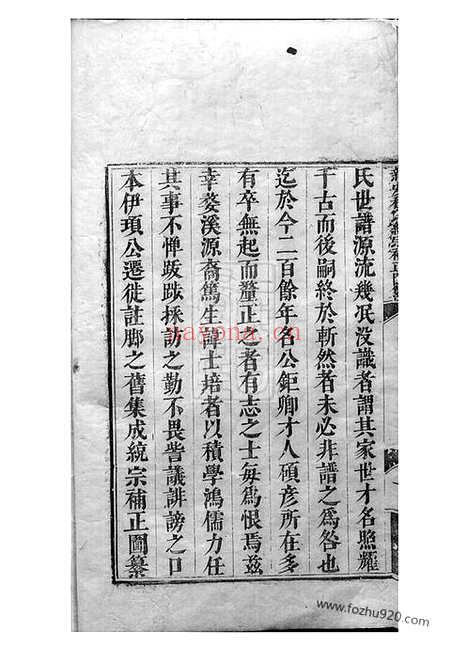 氏世譜源流幾泯没識者謂其家世才名照耀
千古而後嗣終於斬然者未必非譜之爲咎也
迄於今二百餘年名公鉅卿才人碩彦所在多
有卒無起而釐正之者有志之士每爲恨焉兹
幸婺溪源裔篤生諱士培者以積學鴻儒力任
其事不憚跋踄採訪之勤不畏訾議誹謗之口
本伊項公遷徙註脚之舊集成統宗補正圖纂
nayona.cn
www.fozhu920.com